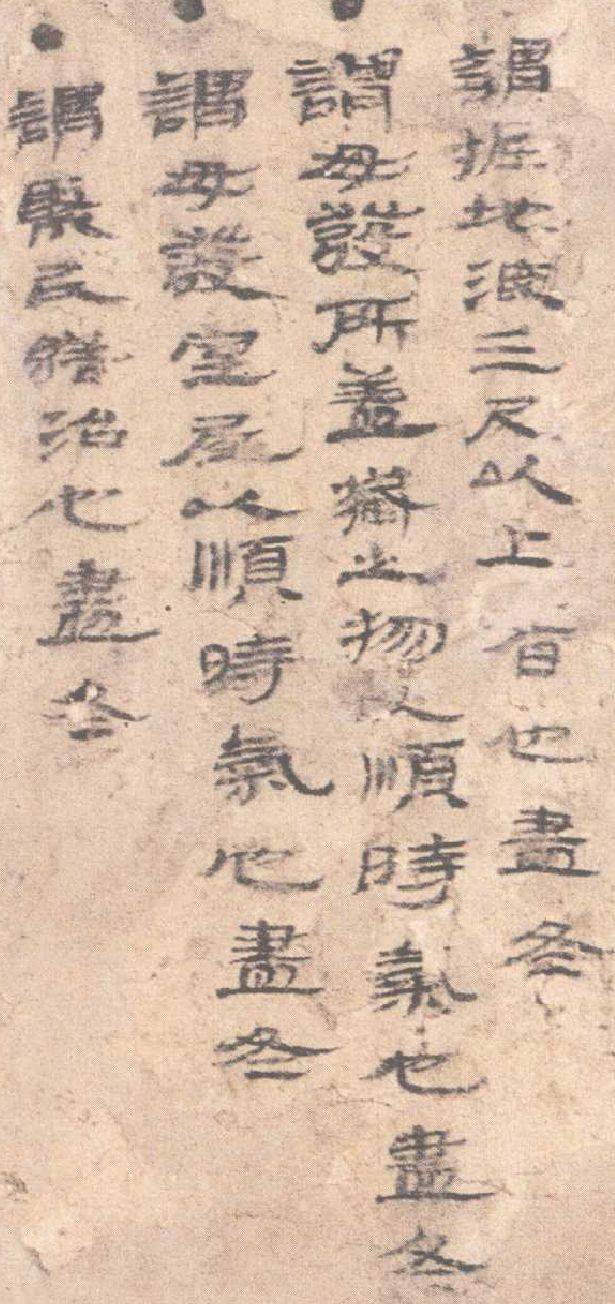 謂掘地深三尺以上者也盡冬
●謂毋發所蓋藏之物以順時氣也盡冬
●謂毋發室屋以順時氣也盡冬
●謂聚民繕治也盡冬